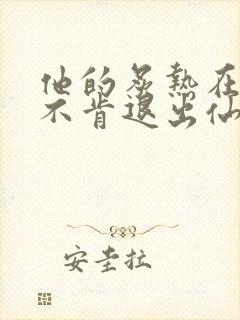 他的炙热在
不肯退出仙
安圭拉